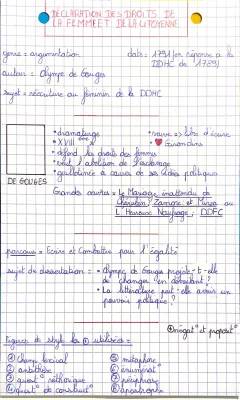 DÉCLARATION DES DROITS DE
LA FEMME ET DE LA CITOYENNE.
genre = argumentation
date : 1791 (en réponse à la
DDHC de 1789)
auteur : Olympe de Gouges
sujet = réécriture au féminin de la DDHC
• dramaturge
• XVIII ème s
• défend les droits des femmes
• veut l'abolition de l'esclavage
• guillotinée à cause de ses idées politiques
• veuve => libre d'écrire
• ❤ girondins
DE GOUGES
Grandes œuvres = Le Mariage inattendu de
Chérubin, Zamore et Mirza ou
L'Heureux Naufrage, DDFC
parcours = Écrire et Combattre pour l'égalité
sujet de dissertation = • Olympe de Gouges projette-t-elle
de changer en combattant ?
• La littérature peut-elle avoir un
pouvoir politique ?
Figures de style la + utilisées =
① champ lexical
② antithèse
③ quest° réthorique
⑤ métaphore
⑥ énumérat°
⑦ périphrase
⑧ apostrophe